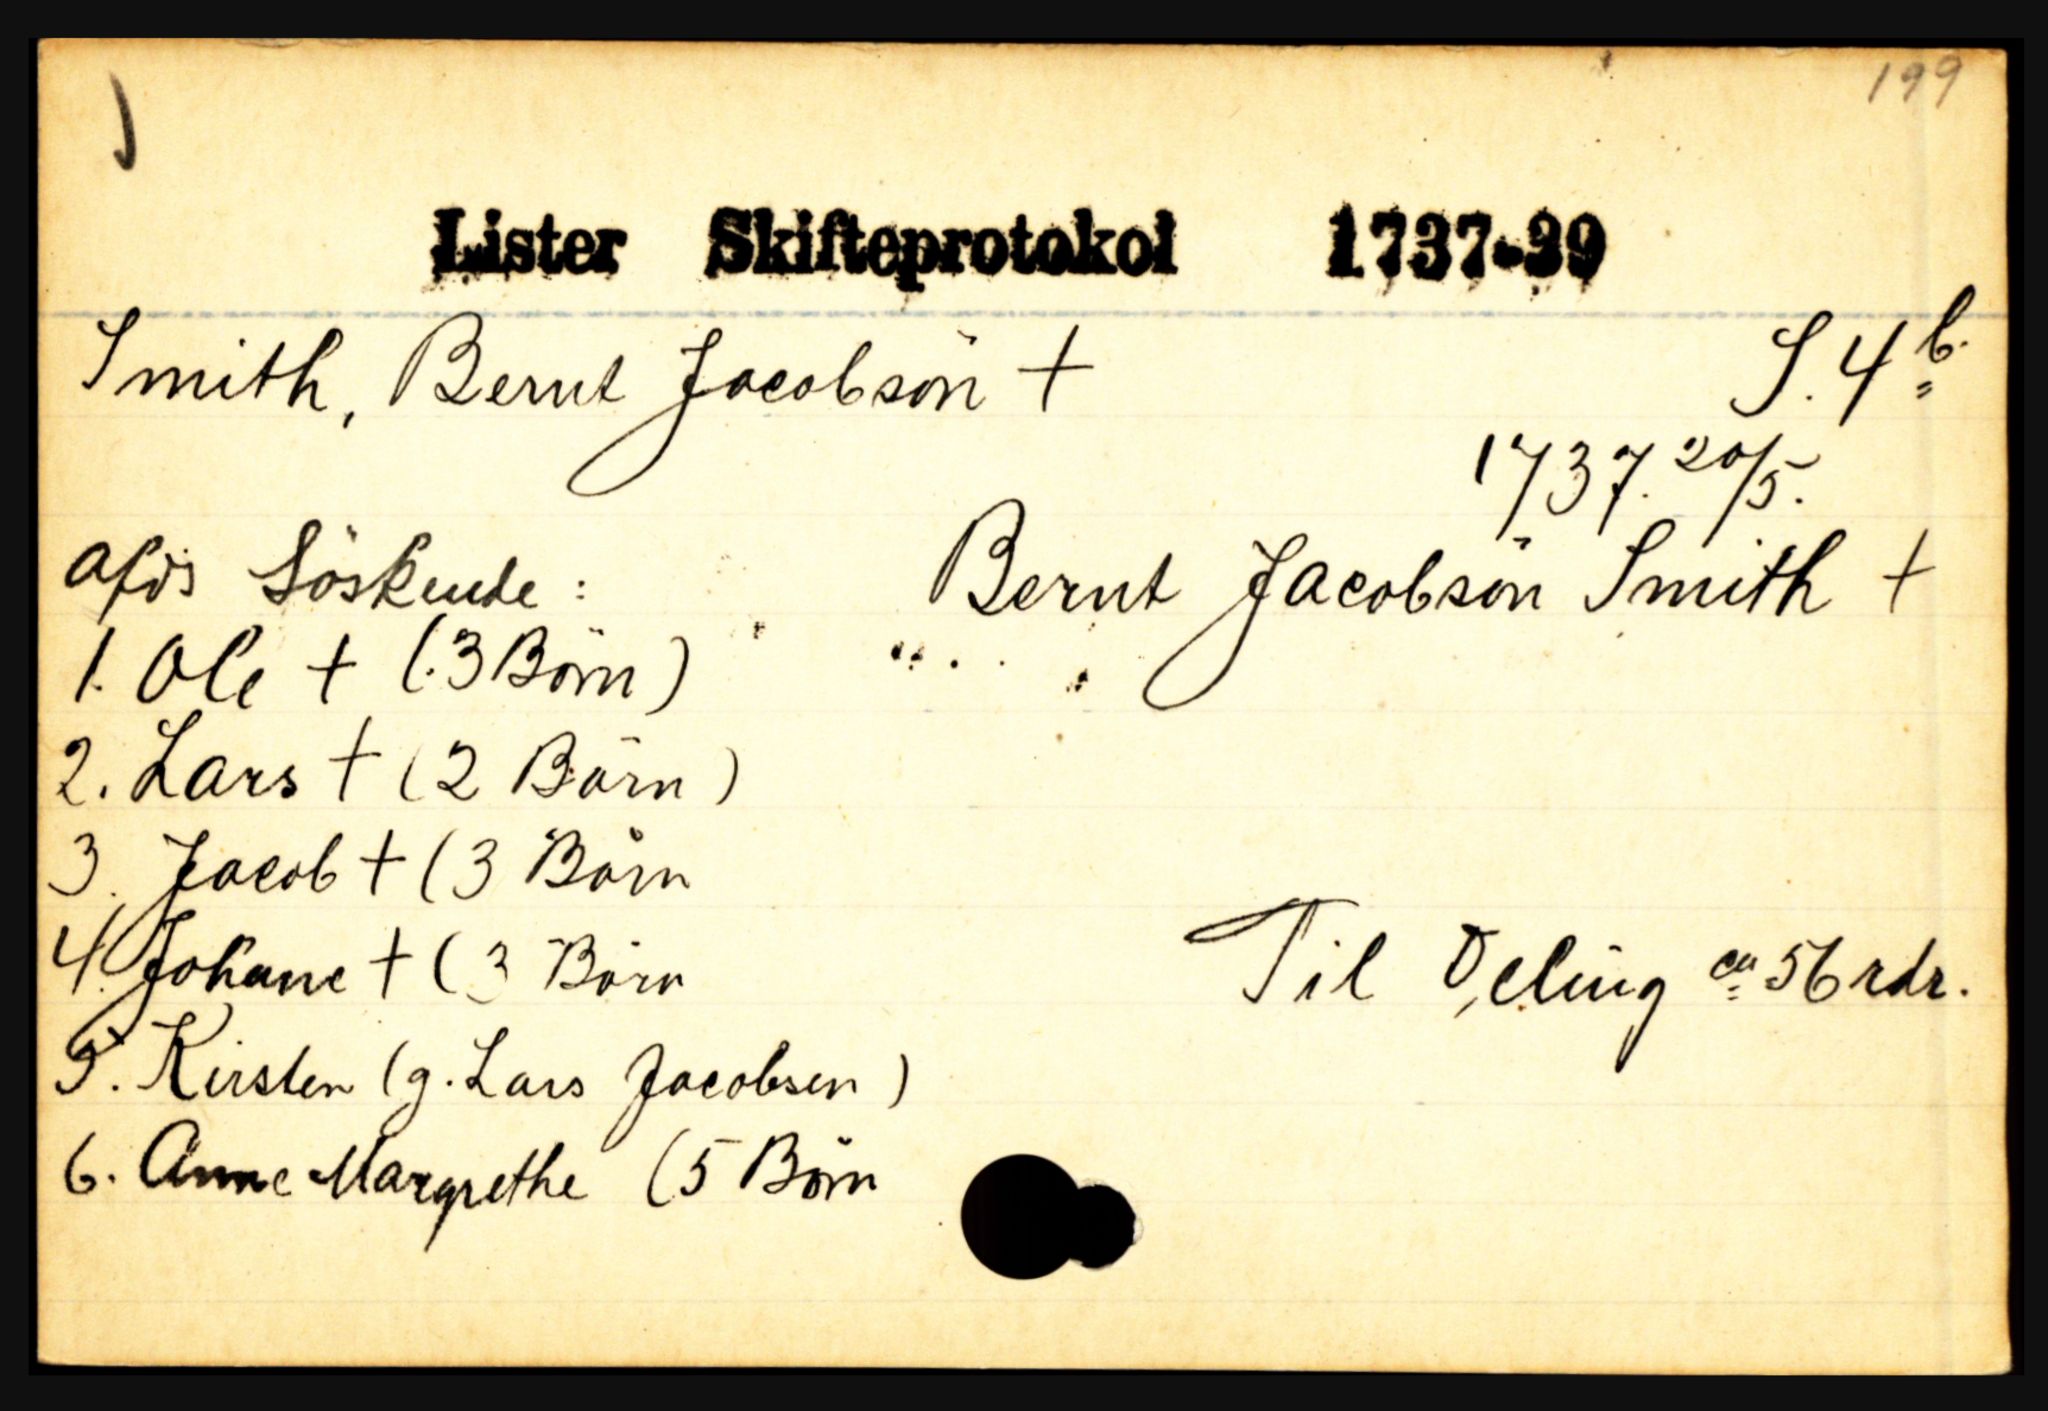 199
Lister Skifteprotokol 1737-39
Smith, Bernt Jacobsön + S. 4 b.
1737. 20/5.
Afd's Söskende :
Bernt Jacobsön Smith +
1. Ole + (.3 Börn)
2. Lars + (2 Börn)
3. Jacob + (3 Börn
4. Johane + (3 Börn
Til Deling ca 56 rdr.
5. Kirsten (g. Lars Jacobsen)
6. Anne Margrethe (5 Börn